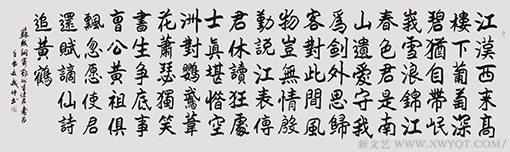 江漢西來高
樓下葡萄深
碧猶自帶岷
峨雪浪錦江
春色君是南
山遺愛守我
為劍外思歸
客對此間風
物豈無情殷
勤説江表傳
君休讀狂處
士真堪惜空
洲對鸚鵡葦
花蕭瑟獨笑
書生爭底事
曹公黃祖俱
飄忽愿使君
還賦謫仙詩
追黃鶴
蘇軾詞寄鄂州朱使君壽昌
新文艺 WWW.XWYQT.COM